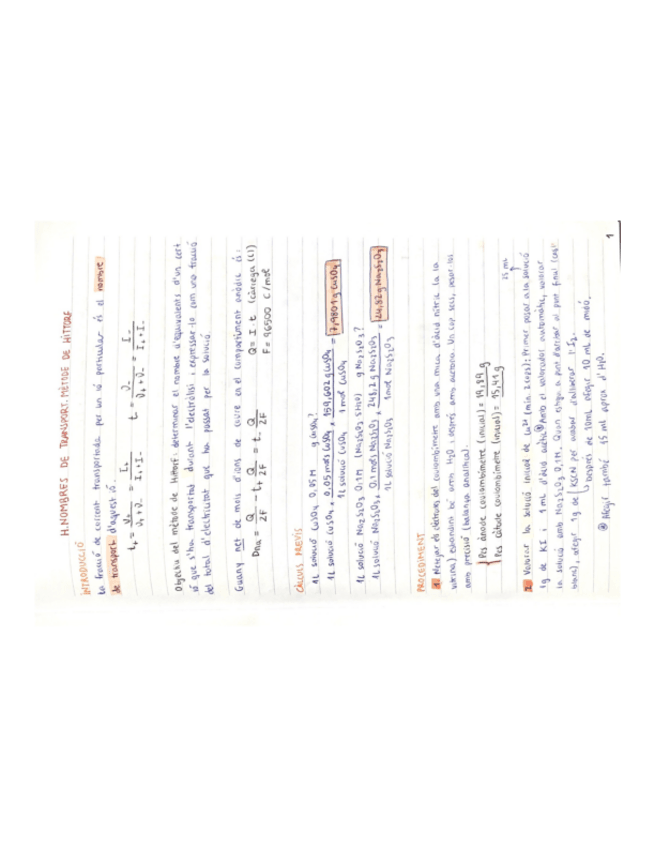 H. NOMBRES DE TRANSPORT. MÈTODE DE HITTORF
INTRODUCCIÓ
La fracció de corrent transportada per un ió particular és el nombre
de transport d'aquest ió.
t₊ = v₊ / v₊ + v₋ = I₊ / I₊ + I₋    t₋ = v₋ / v₊ + v₋ = I₋ / I₊ + I₋
Objectiu del mètode de Hittorf: determinar el nombre d'equivalents d'un cert
ió que s'ha transportat durant l'electròlisi i expressar-lo com una fracció
del total d'electricitat que ha passat per la solució.
Guany net de mols d'ions de coure en el compartiment anòdic és:
Dna = Q/2F - t₊ Q/2F = t₋ Q/2F    Q = I · t (càrrega (C))
F = 96500 C/mol
CÀLCULS PREVIS
1L solució CuSO₄ 0,05 M g CuSO₄?
1L solució CuSO₄ × 0,05 mols CuSO₄ / 1L solució CuSO₄ × 159,602 g CuSO₄ / 1 mol CuSO₄ = 7,9801 g CuSO₄
1L solució Na₂S₂O₃ 0,1M (Na₂S₂O₃ 5H₂O) g Na₂S₂O₃?
1L solució Na₂S₂O₃ × 0,1 mols Na₂S₂O₃ / 1L solució Na₂S₂O₃ × 248,2 g Na₂S₂O₃ / 1 mol Na₂S₂O₃ = 24,82 g Na₂S₂O₃
PROCEDIMENT
1. Netejar els elèctrodes del coulombímetre amb una mica d'àcid nítric (a la
vitrina), esbandir bé amb H₂O i després amb acetona. Un cop secs, pesar-los
amb precisió (balança analítica).
Pes ànode coulombímetre (inicial) = 19,89 g
Pes càtode coulombímetre (inicial) = 15,41 g
25 mL
2. Valorar la solució inicial de Cu²⁺ (mín. 2 cops): Primer posar a la solució
1g de KI i 1 mL d'àcid acètic. Amb el valorador automàtic, valorar
la solució amb Na₂S₂O₃ 0,1M. Quan estigui a punt d'arribar al punt final
blanc), afegir 1g de KSCN per acabar d'alliberar l'I₂.
després de 10mL afegir 10 mL de midó.
Afegir també 15 mL aprox d'H₂O.
1